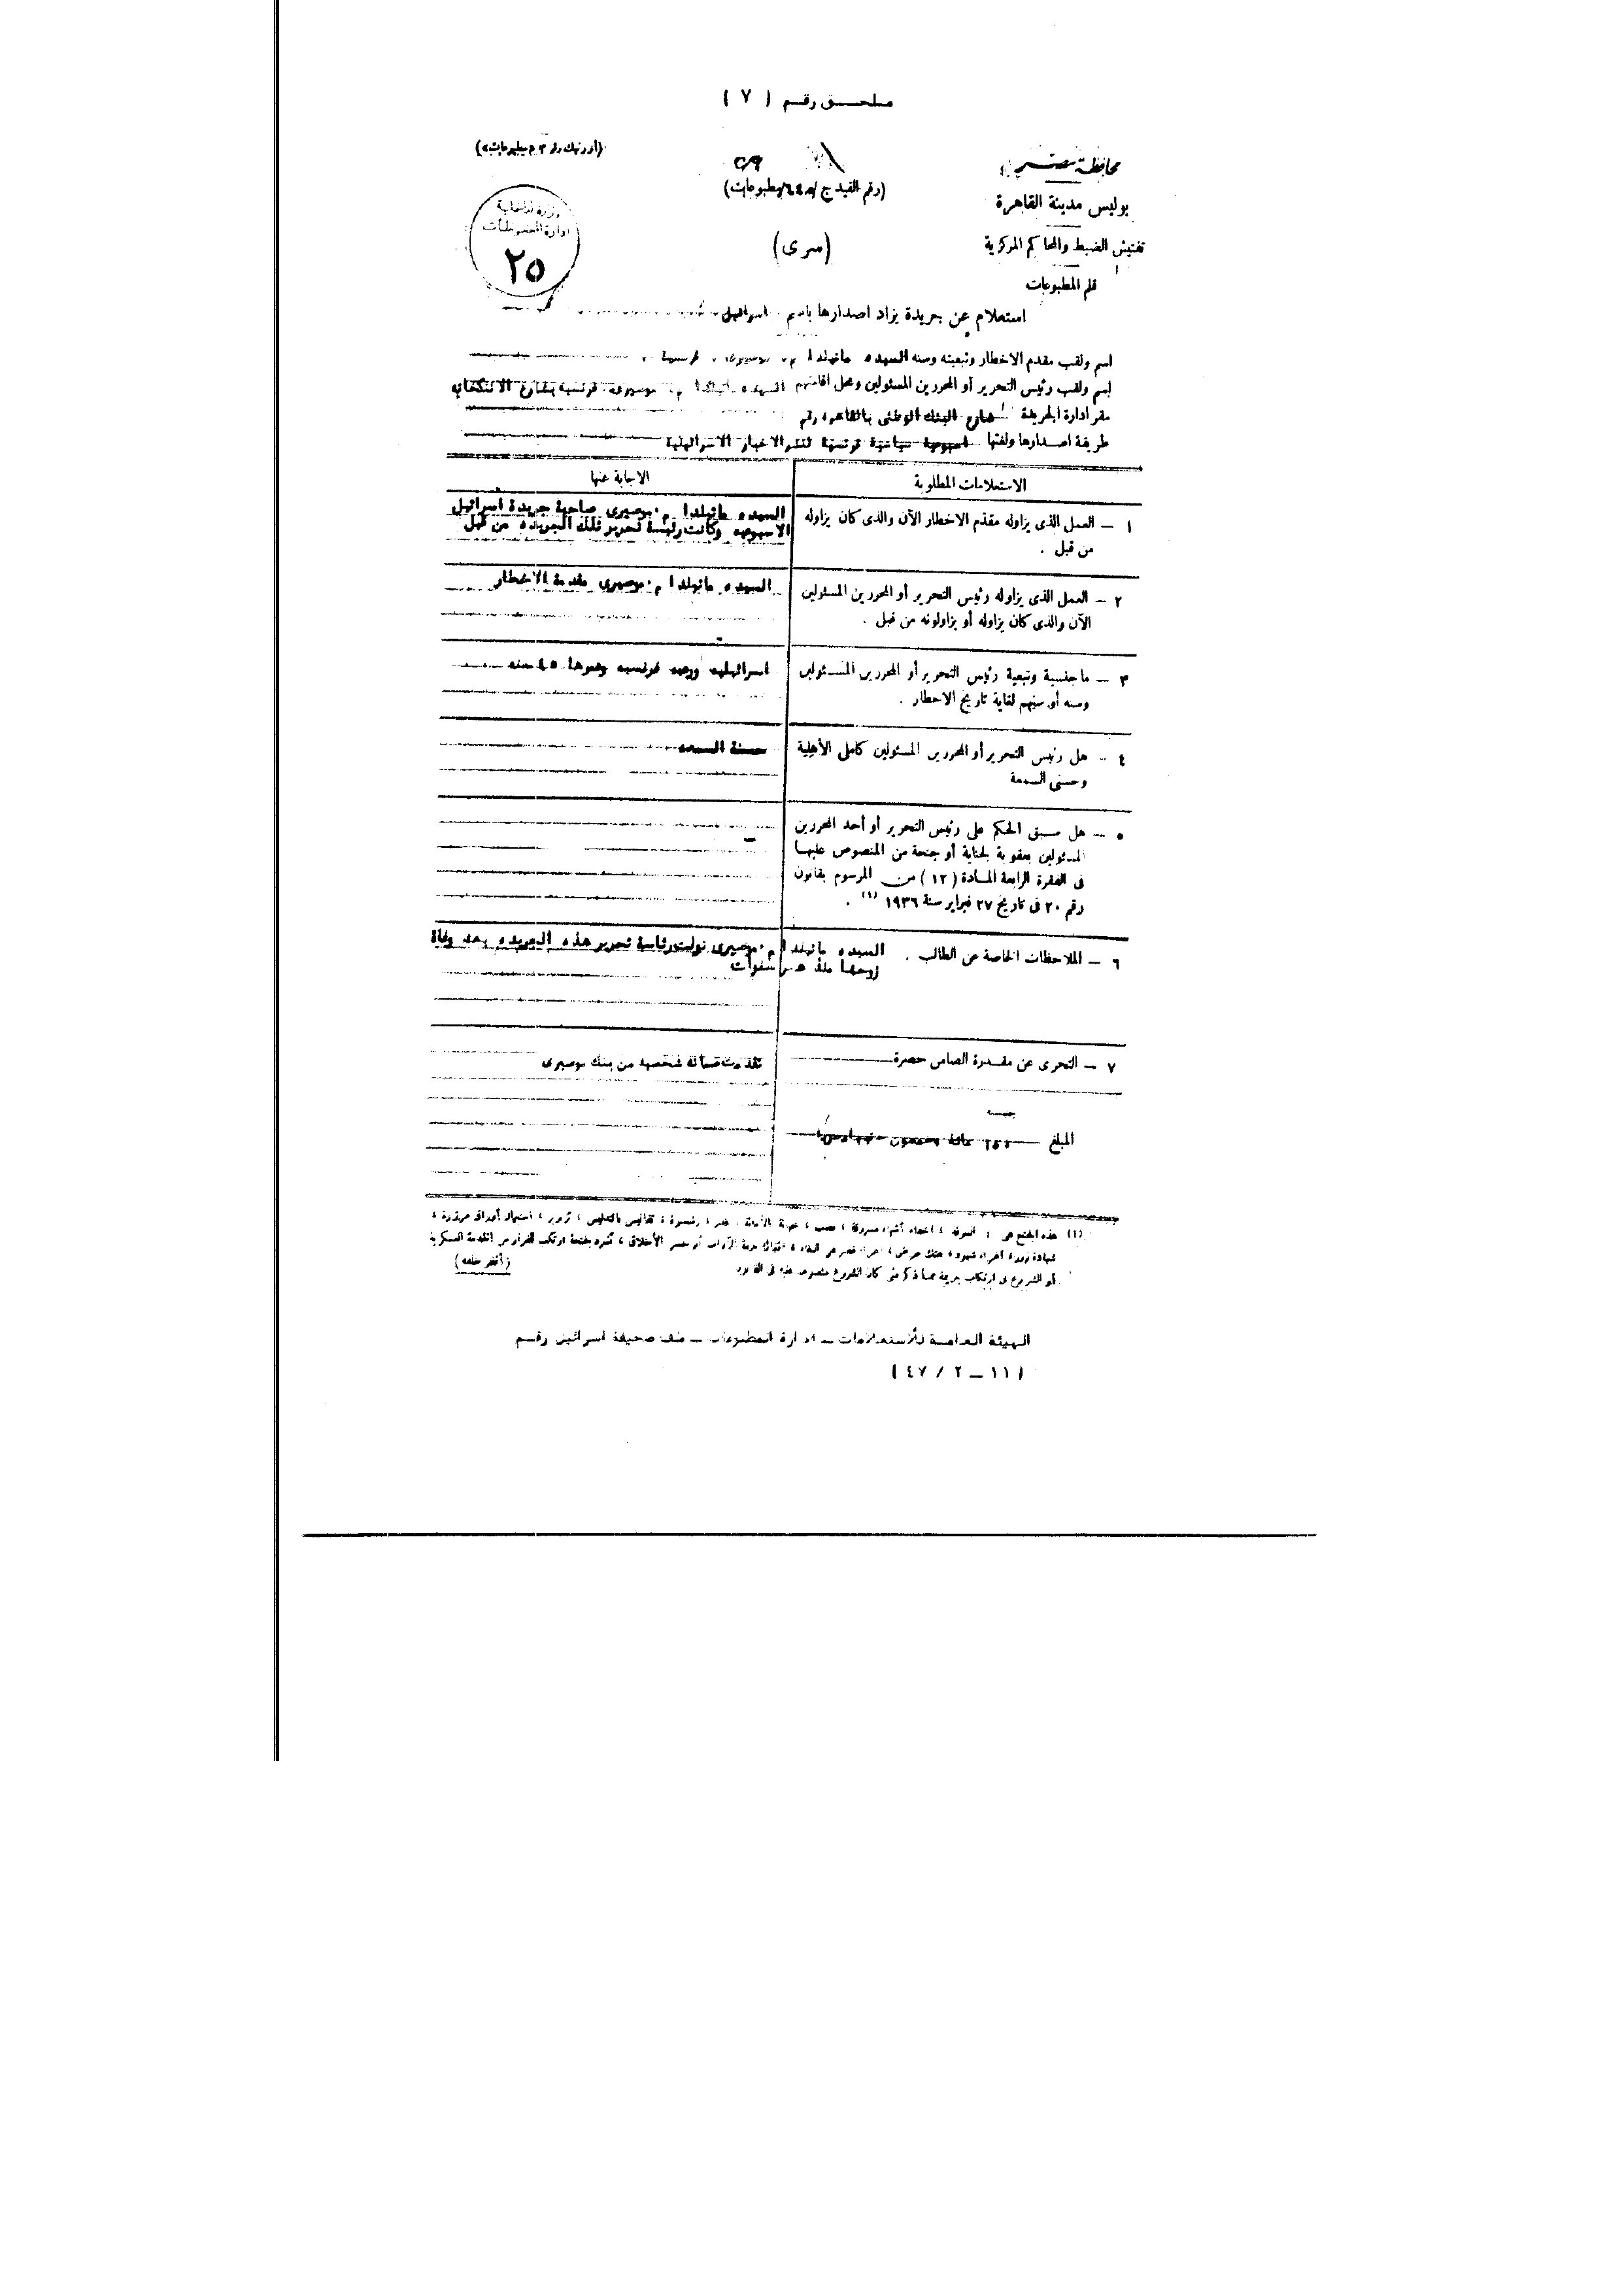 ملحق رقم ( ٧ )
محافظة مصر
بوليس مدينة القاهرة
تفتيش الضبط والمحاكم المركزية
قلم المطبوعات
(سرى)
وزارة الداخلية
ادارة المطبوعات
٢٥
استعلام عن جريدة يراد اصدارها باسم اسرائيل
اسم ولقب مقدم الاخطار وتبعيته وسنه السيده ماتيلدا م. موصيرى
اسم ولقب رئيس التحرير أو المحررين المسئولين ومحل اقامتهم السيده ماتيلدا م. موصيرى فرنسية بشارع
مقر ادارة الجريدة شارع البنك الوطنى بالقاهرة رقم
طريقة اصدارها ولغتها اسبوعية سياسية فرنسية لنشر الاخبار الاسرائيلية
الاستعلامات المطلوبة
الاجابة عنها
١ – العمل الذى يزاوله مقدم الاخطار الآن والذى كان يزاوله
من قبل .
السيده ماتيلدا م. موصيرى صاحبة جريدة اسرائيل
الاسبوعيه وكانت رئيسة تحرير تلك الجريده من قبل
٢ – العمل الذى يزاوله رئيس التحرير أو المحررين المسئولين
الآن والذى كان يزاوله أو يزاولونه من قبل .
السيده ماتيلدا م. موصيرى مقدمة الاخطار
٣ – ما جنسية وتبعية رئيس التحرير أو المحررين المسئولين
وسنه أو سنهم لغاية تاريخ الاخطار .
اسرائيليه ورعيه فرنسيه وعمرها ٤٥ سنه
٤ – هل رئيس التحرير أو المحررين المسئولين كاملى الأهلية
وحسنى السمعة
حسنة السمعه
٥ – هل سبق الحكم على رئيس التحرير أو أحد المحررين
المسئولين بعقوبة لجناية أو جنحة من المنصوص عليها
فى الفقرة الرابعة المادة (١٢) من المرسوم بقانون
رقم ٢٠ فى تاريخ ٢٧ فبراير سنة ١٩٣٦ (١) .
–
٦ – الملاحظات الخاصة عن الطالب .
السيده ماتيلدا م. موصيرى توليت رئاسة تحرير هذه الجريده بعد وفاة
زوجها منذ عشر سنوات
٧ – التحرى عن مقدرة الضامن حضرة
تقدمت ضمانة شخصيه من بنك موصيرى
جنيه
المبلغ ١٥٠ مائة وخمسون جنيها مصريا
(١) هذه الجنح هى : السرقة ، اخفاء أشياء مسروقة ، نصب ، خيانة الأمانة ، غدر ، رشوة ، تفاليس بالتدليس ، تزوير ، استعمال أوراق مزورة ،
شهادة زور ، اغراء شهود ، هتك عرض ، انتهاك حرمة الآداب أو حسن الأخلاق ، تشرد بجنحة ارتكبت للفرار من الخدمة العسكرية
أو الشروع فى ارتكاب جريمة مما ذكر متى كان الشروع منصوص عليه فى القانون
(أنظر خلفه)
الهيئة العامة للأستعلامات – ادارة المطبوعات – ملف صحيفة اسرائيل رقم
( ١١ – ٢ / ٤٧ )